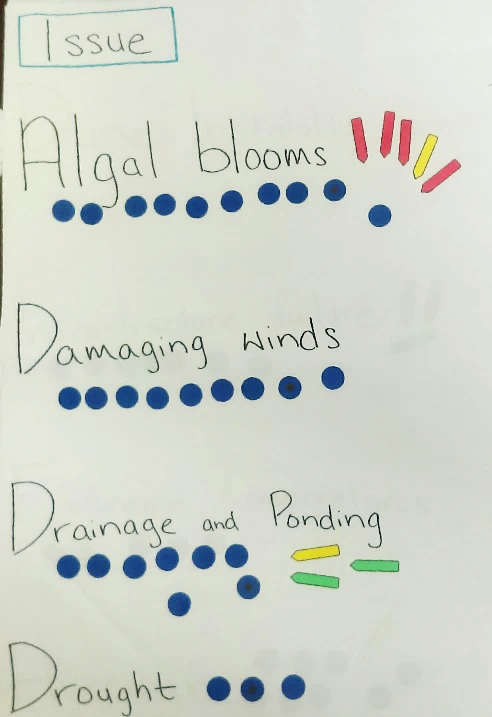 Issue
Algal blooms
Damaging winds
Drainage and Ponding
Drought